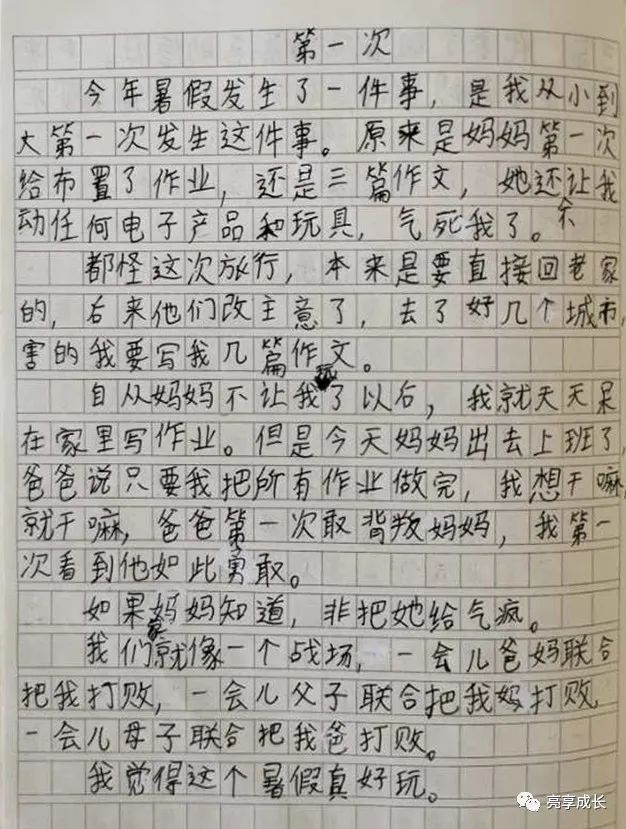 第一次
今年暑假发生了一件事，是我从小到
大第一次发生这件事。原来是妈妈第一次
给布置了作业，还是三篇作文，她还让我不
动任何电子产品和玩具，气死我了。
都怪这次旅行，本来是要直接回老家
的，后来他们改主意了，去了好几个城市，
害的我要写我几篇作文。
自从妈妈不让我玩了以后，我就天天呆
在家里写作业。但是今天妈妈出去上班了，
爸爸说只要我把所有作业做完，我想干嘛
就干嘛，爸爸第一次敢背叛妈妈，我第一
次看到他如此勇敢。
如果妈妈知道，非把她给气疯。
我们家就像一个战场，一会儿爸妈联合
把我打败，一会儿父子联合把我妈打败，
一会儿母子联合把我爸打败。
我觉得这个暑假真好玩。
亮享成长